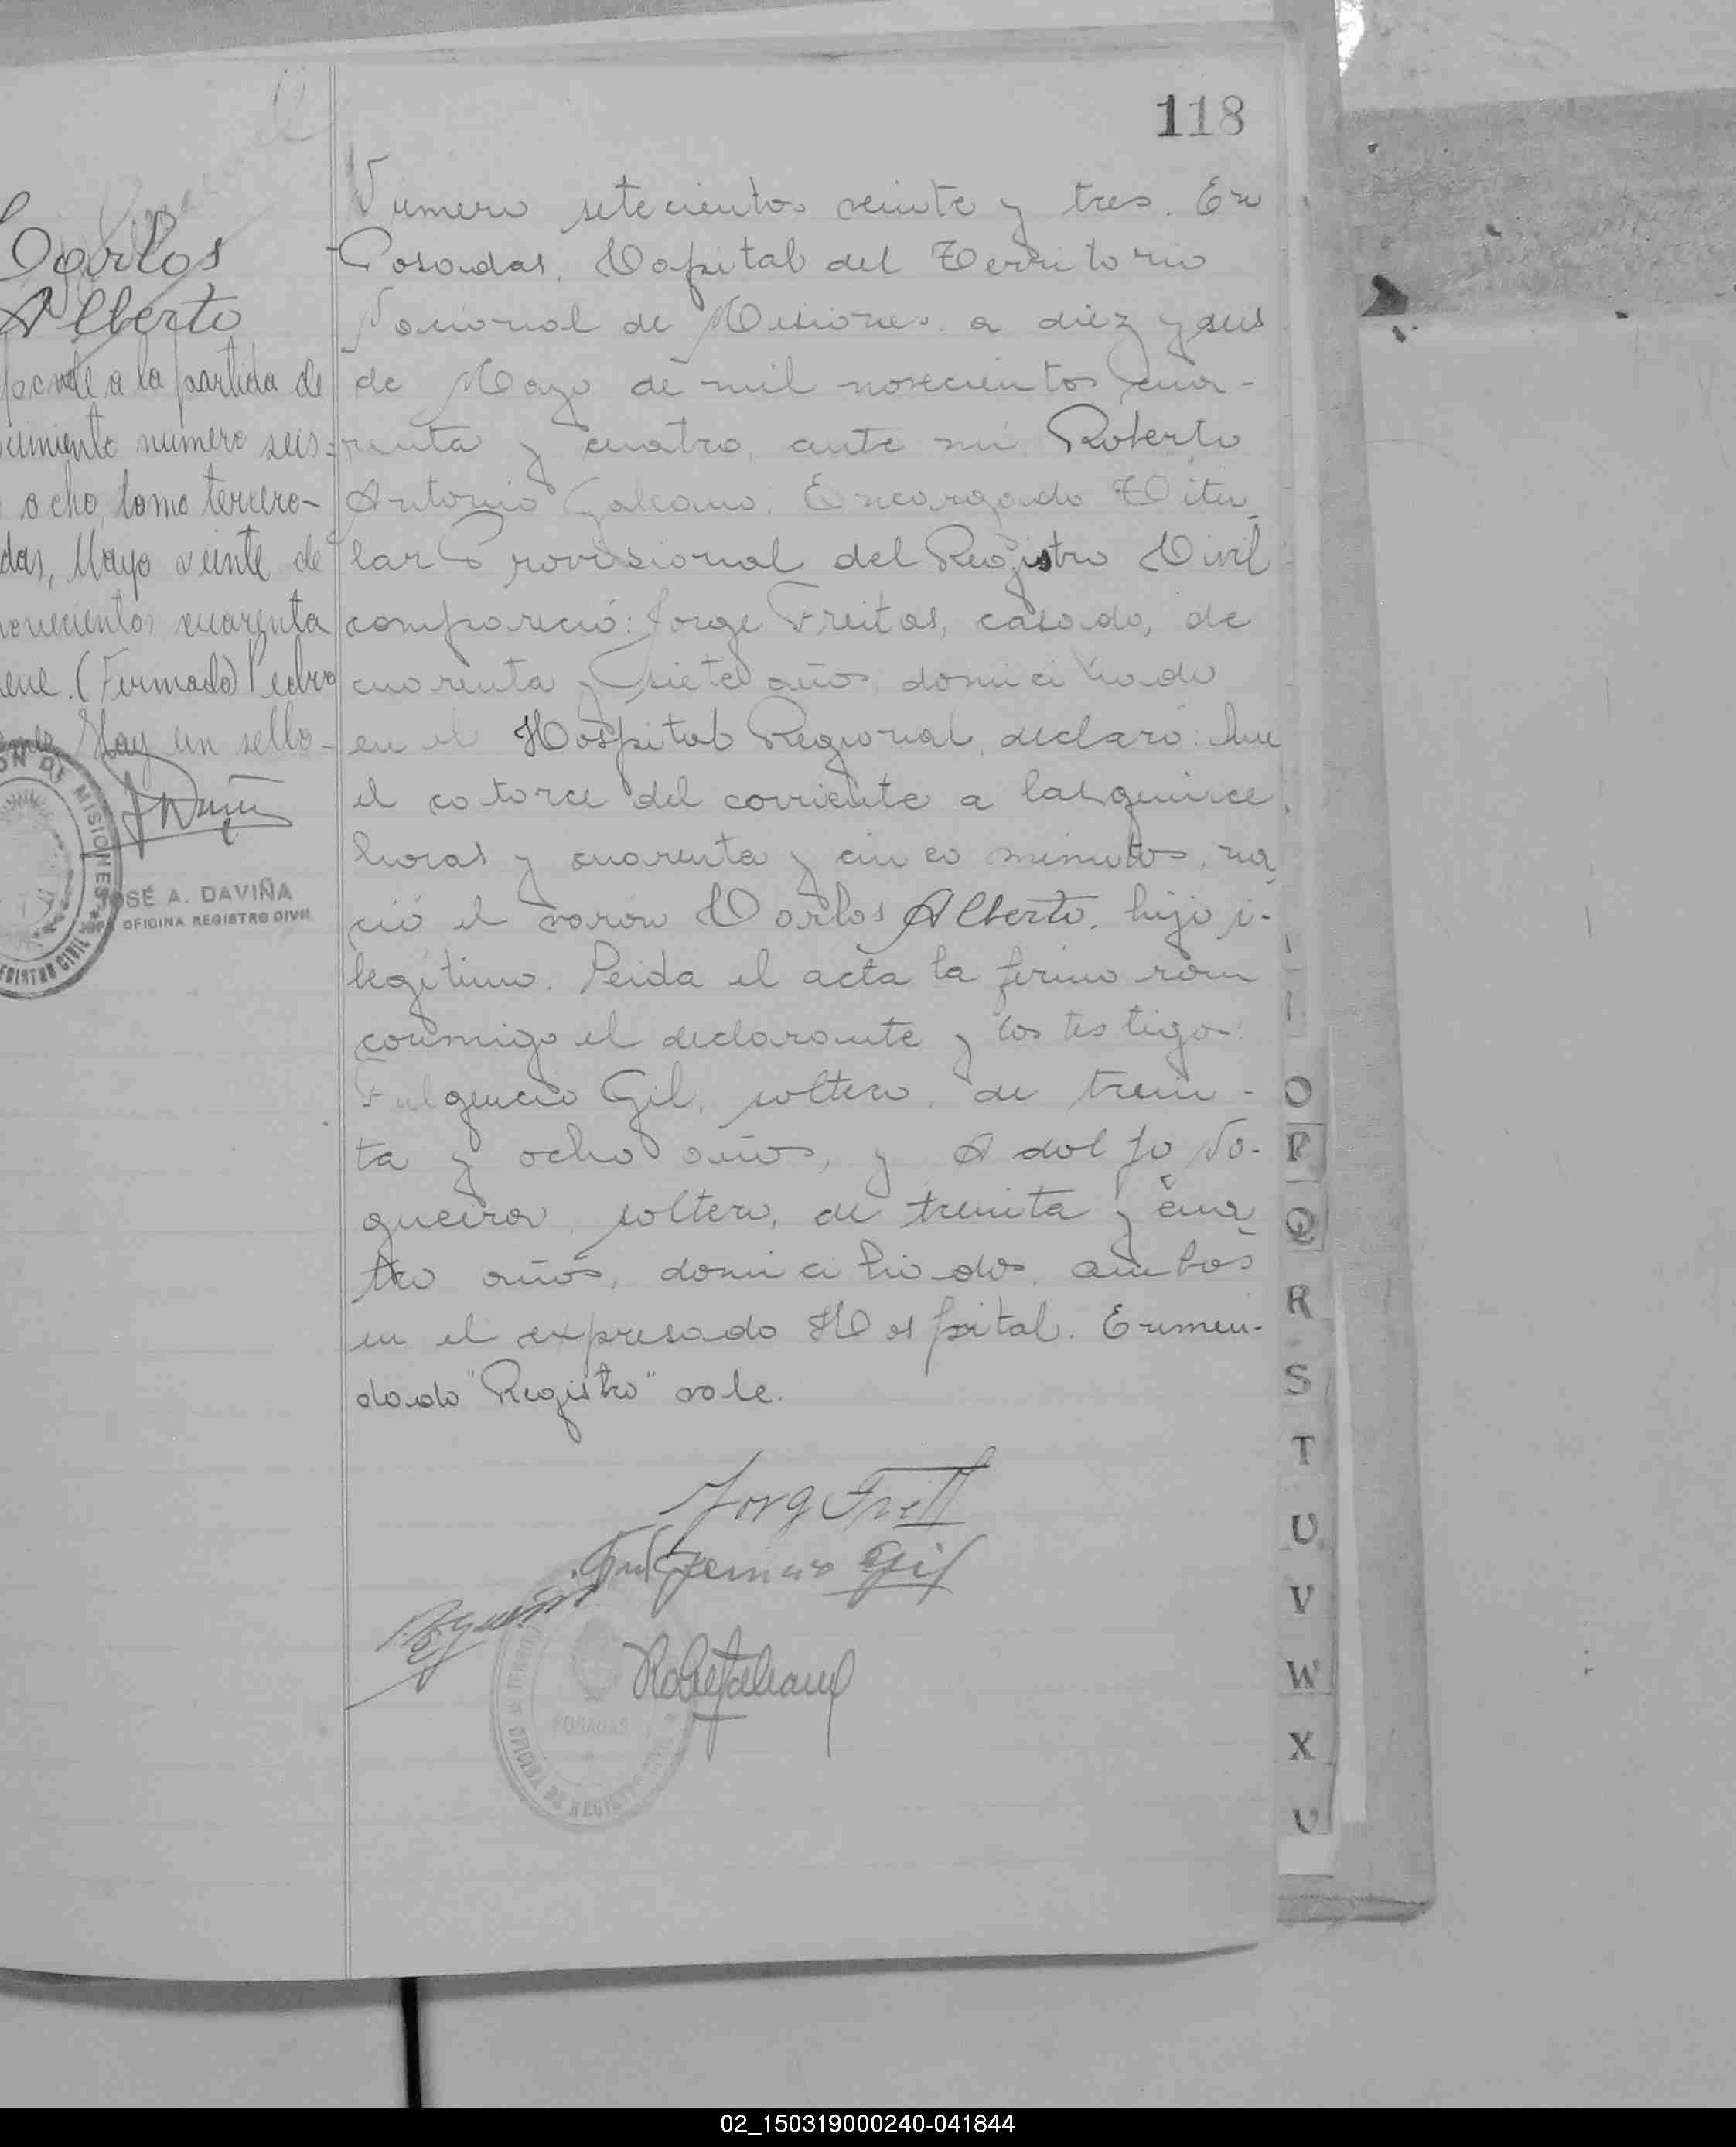 118
Carlos
Alberto
a la partida de
numero seis=
ocho, tomo tercero-
das, Mayo veinte de
novecientos cuarenta
(Firmado) Pedro
Hay un sello-
JOSÉ A. DAVIÑA
JEFE OFICINA REGISTRO CIVIL
Numero setecientos veinte y tres. En
Posadas, Capital del Territorio
Nacional de Misiones, a diez y seis
de Mayo de mil novecientos cua-
renta y cuatro, ante mi Roberto
Antonio Galeano, Encargado Titu-
lar Provisional del Registro Civil
compareció: Jorge Freitas, casado, de
cuarenta y siete años, domiciliado
en el Hospital Regional, declaró: Que
el catorce del corriente a las quince
horas y cuarenta y cinco minutos, na-
ció el varón Carlos Alberto, hijo i-
legitimo. Leida el acta la firma ron
conmigo el declarante y los testigos:
Fulgencio Gil, soltero, de trein-
ta y ocho años, y Adolfo No-
gueira, soltero, de treinta y cua-
tro años, domiciliados, ambos
en el expresado Hospital. Enmen-
dado "Registro" vale.
Fulgencio Gil
POSADAS
OFICINA DE REGISTRO CIVIL
O
P
Q
R
S
T
U
V
W
X
02_150319000240-041844